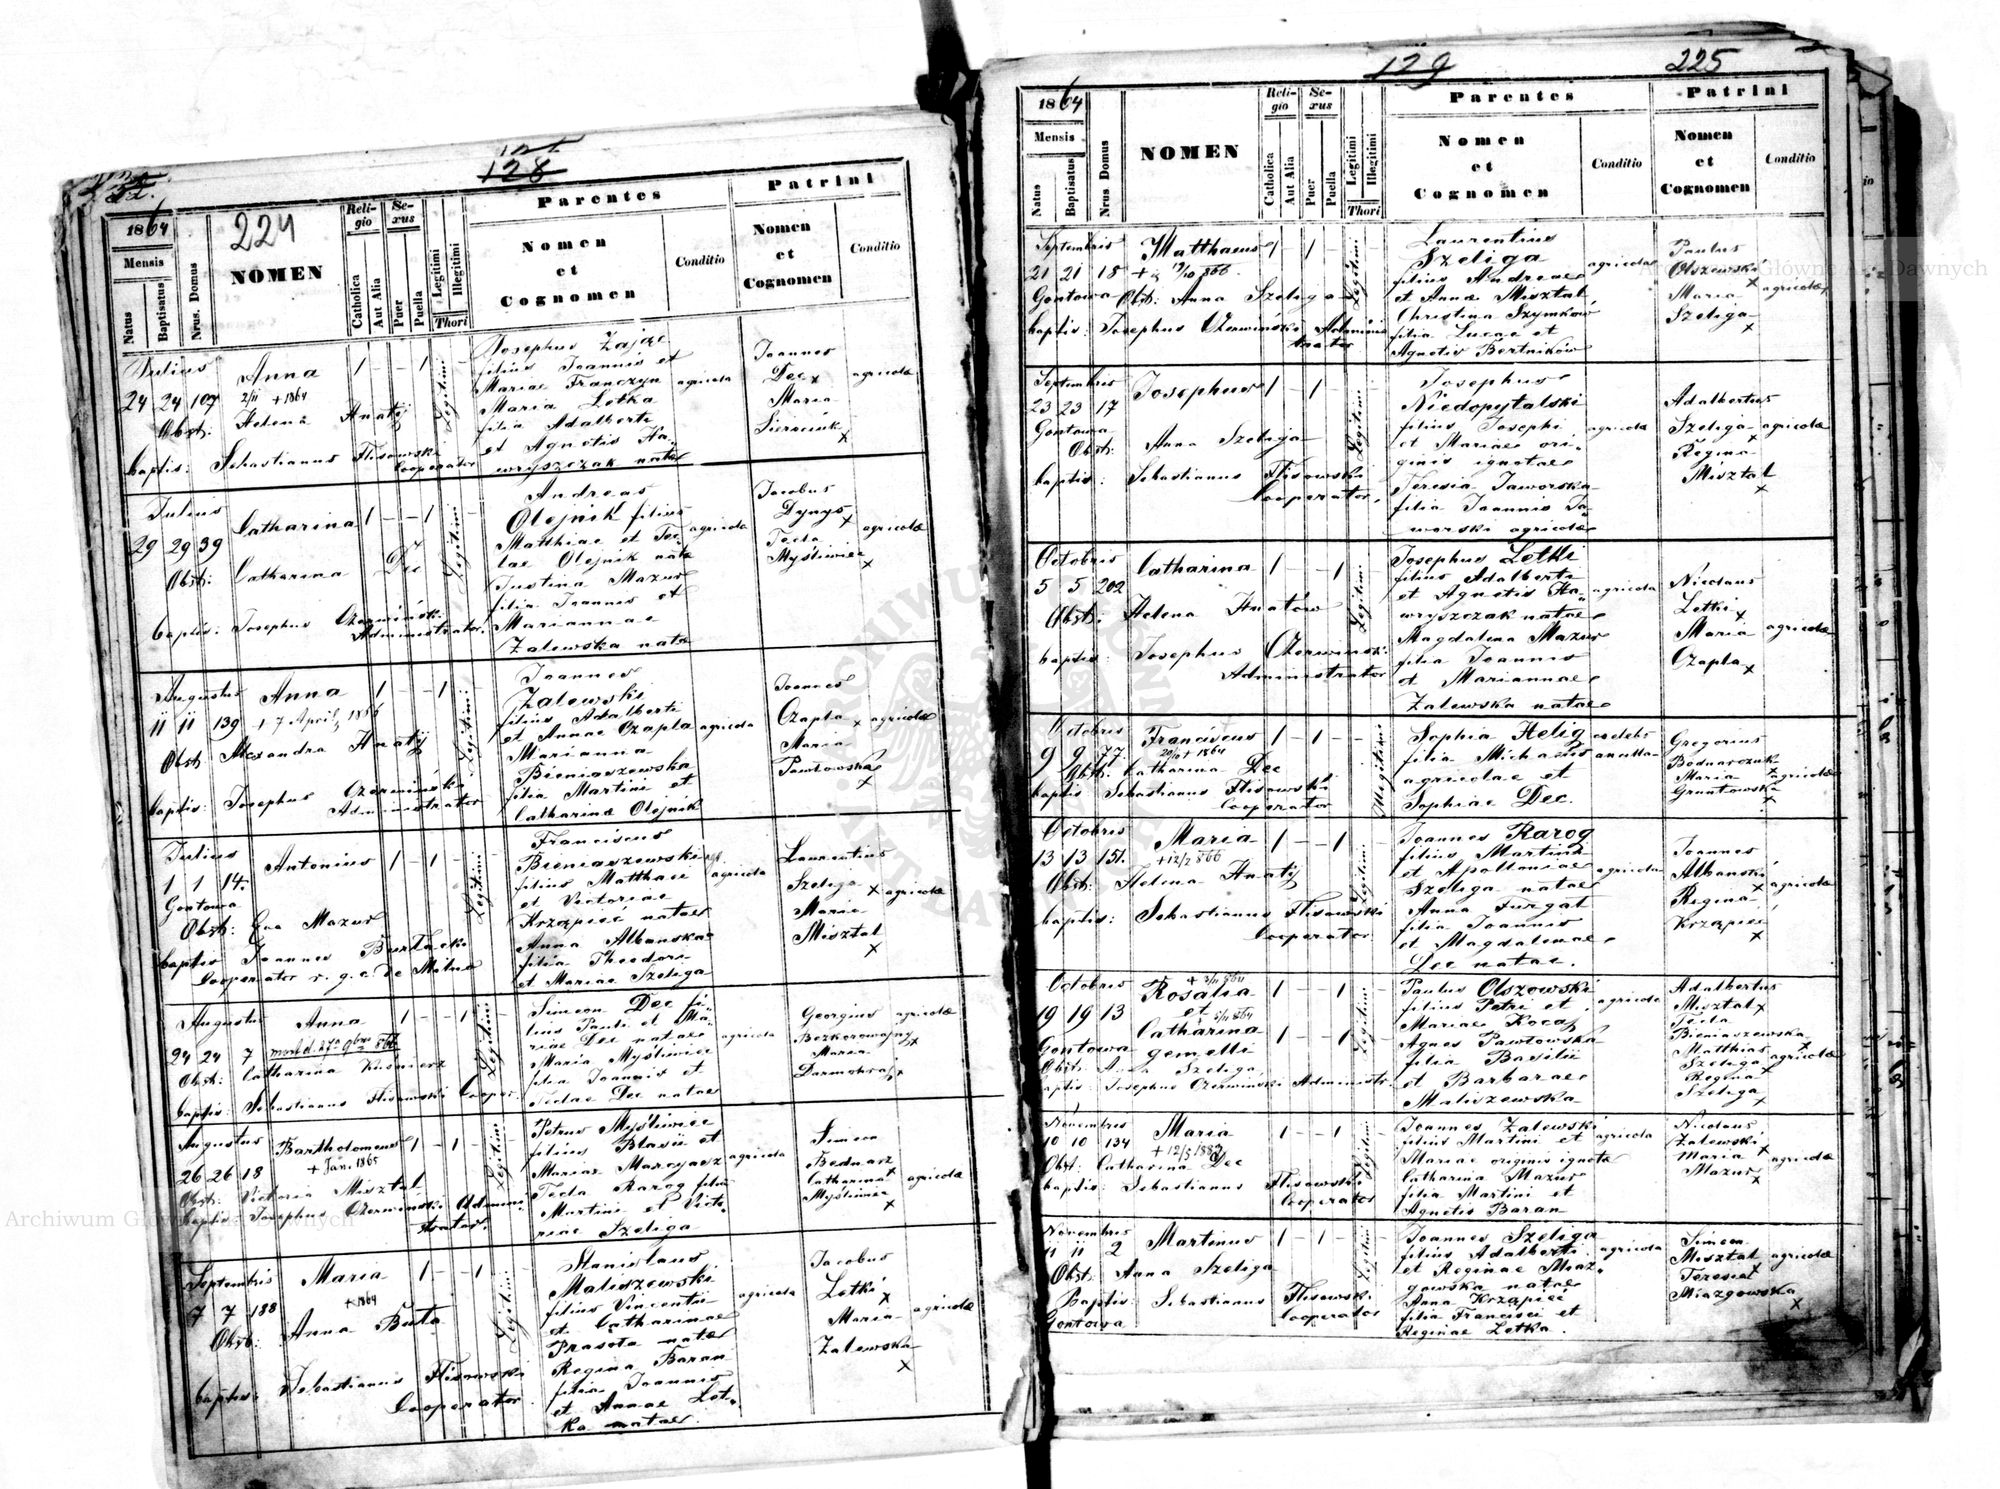 128
224
1864
Mensis
Natus
Baptisatus
Nrus. Domus
NOMEN
Religio
Catholica
Aut Alia
Sexus
Puer
Puella
Legitimi
Illegitimi
Thori
Parentes
Nomen
et
Cognomen
Conditio
Patrini
Nomen
et
Cognomen
Conditio
Julius
24 24 107
Anna
2/11 +1864
Obst: Helena Hnatÿ
baptis: Sebastianus Flisowski
Cooperator
Legitimi
Josephus Zając
filius Joannis et
Mariae Franczyn
Maria Letka
filia Adalberti
et Agnetis Ha-
wryszczak natae
agricola
Joannes
Dec x
Maria
Sierciuk x
agricolae
Julius
29 29 39
Catharina
Obst: Catharina Dec
baptis: Josephus Czerwiński
Administrator
Legitimi
Andreas
Olejnik filius
Matthiae et Tec
lae Olejnik natae
Justina Mazur
filia Joannis et
Mariannae
Zalewska natae
agricola
Jacobus
Dynys x
Tecla
Myśliwiec x
agricolae
Augustus
11 11 139
Anna
+ 7 April 1866
Obst: Alexandra Hnatÿ
baptis: Josephus Czerwiński
Administrator
Legitimi
Joannes
Zalewski
filius Adalberti
et Annae Czapla
Marianna
Bieniaszewska
filia Martini et
Catharinae Olejnik
agricola
Joannes
Czapla x
Maria
Pawłowska x
agricolae
Julius
1 1 14.
Gontowa
Antonius
Obst: Eva Mazur
baptis Joannes Burtacki
Cooperator r. g. c. de Milno
Legitimi
Franciscus
Bieniaszewski
filius Matthaei
et Victoriae
Krząpiec natae
Anna Albańska
filia Theodori
et Mariae Szeliga
agricola
Laurentius
Szeliga x
Maria
Misztal x
agricolae
Augustus
24 24 7
Anna
Obst: Catharina Kuśnierz
baptis: Sebastianus Flisowski Cooper
Legitimi
Simeon Dec fi-
lius Pauli et Ma-
riae Dec natae
Maria Myśliwiec
filia Joannis et
Teclae Dec natae
agricola
Georgius
Bezkorowajny x
Maria
Darmohraj x
agricolae
Augustus
26 26 18
Bartholomeus
+ Jan. 1865
Obst: Victoria Misztal
baptis Josephus Czerwiński Admini-
strator
Legitimi
Petrus Myśliwiec
filius Blasii et
Mariae Marcyasz
Tecla Rarog filia
Martini et Victo-
riae Szeliga
agricola
Simeon
Bednarz
Catharina x
Myśliwiec x
agricolae
Septembris
7 7 188
Maria
+ 1864
Obst: Anna Buta
baptis: Sebastianus Flisowski
Cooperator
Legitimi
Stanislaus
Maliszewski
filius Vincentii
et Catharinae
Prasoła natae
Regina Baran
filia Joannis
et Annae Let-
ka natae
agricola
Jacobus
Letki x
Maria
Zalewska x
agricolae
129
225
1864
Mensis
Natus
Baptisatus
Nrus Domus
NOMEN
Religio
Catholica
Aut Alia
Sexus
Puer
Puella
Legitimi
Illegitimi
Thori
Parentes
Nomen
et
Cognomen
Conditio
Patrini
Nomen
et
Cognomen
Conditio
Septembris
21 21 18
Gontowa
Matthaeus
Obst: Anna Szeliga
baptis: Josephus Czerwiński Adminis
trator
Legitimi
Laurentius
Szeliga
filius Andreae
et Annae Misztal,
Christina Szymków
filia Lucae et
Agnetis Bertników
agricola
Paulus
Olszewski x
Maria
Szeliga x
agricolae
Septembris
23 23 17
Gontowa
Josephus
Obst: Anna Szeliga
baptis: Sebastianus Flisowski
Cooperator.
Legitimi
Josephus
Niedopytalski
filius Josephi
et Mariae ori-
ginis ignotae
Teresia Jaworska
filia Joannis Ja-
worski agricolae
agricola
Adalbertus
Szeliga x
Regina
Misztal x
agricolae
Octobris
5 5 202
Catharina
Obst: Helena Hnatów
baptis: Josephus Czerwiński
Administrator
Legitimi
Josephus Letki
filius Adalberti
et Agnetis Ha-
wryszczak natae
Magdalena Mazur
filia Joannis
et Mariannae
Zalewska natae
agricola
Nicolaus
Letki x
Maria
Czapla x
agricolae
Octobris
9 9 77
Franciscus
Obst: Catharina Dec
baptis Sebastianus Flisowski
Cooperator
Illegitimi
Sophia Helig
filia Michaelis
agricolae et
Sophiae Dec.
caelebs
ancilla
Gregorius
Bodnarczuk x
Maria
Gruntowska x
agricolae
Octobris
13 13 151.
Maria
+12/2 866
Obst: Helena Hnatÿ
baptis: Sebastianus Flisowski
Cooperator
Legitimi
Joannes Rarog
filius Martini
et Apolloniae
Szeliga natae
Anna Furgał
filia Joannis
et Magdalenae
Dec natae.
agricola
Joannes
Albanski x
Regina
Krząpiec x
agricolae
Octobris
19 19 13
Gontowa
+ 3/11 864
Rosalia
et 5/11 864
Catharina
gemelli
Obst: Anna Szeliga
baptis: Josephus Czerwiński Administr.
Legitimi
Paulus Olszowski
filius Petri et
Mariae Koczaj
Agnes Pawłowska
filia Basilii
et Barbarae
Maliszewska
agricola
Adalbertus
Misztal x
Tecla
Bieniaszewska x
Matthias
Szeliga x
Regina
Szeliga x
agricolae
Novembris
10 10 134
Maria
+ 12/5 1882
Obst: Catharina Dec
baptis: Sebastianus Flisowski
Cooperator
Legitimi
Joannes Zalewski
filius Martini et
Mariae originis ignotae
Catharina Mazur
filia Martini et
Agnetis Baran
agricola
Nicolaus
Zalewski x
Maria
Mazur x
agricolae
Novembris
11 11 2
Martinus
Obst: Anna Szeliga
Baptis: Sebastianus Flisowski
Gontowa
Cooperator
Legitimi
Joannes Szeliga
filius Adalberti
et Reginae Miaz-
gowska natae
Anna Krząpiec
filia Francisci et
Reginae Letka.
agricola
Simeon
Misztal x
Teresia
Miazgowska x
agricolae
Archiwum Główne Akt Dawnych
Archiwum Główne Akt Dawnych